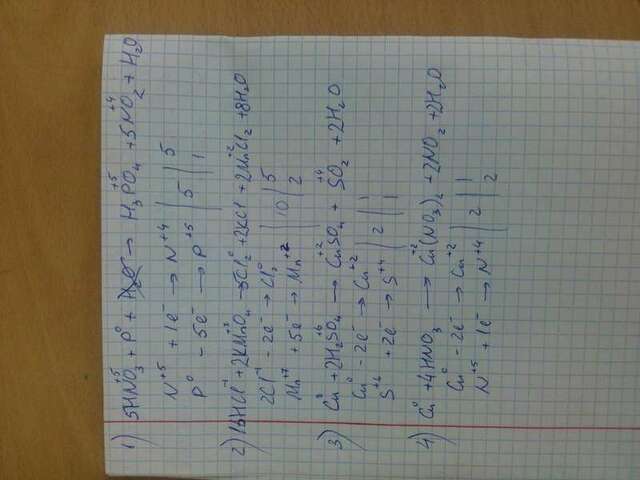 1) 5HN⁺⁵O₃ + P⁰ + → H₃P⁺⁵O₄ + 5N⁺⁴O₂ + H₂O
N⁺⁵ + 1e⁻ → N⁺⁴ | 5 | 5
P⁰ - 5e⁻ → P⁺⁵ | | 1
2) 16HCl⁻¹ + 2KMnO₄ → 5Cl₂⁰ + 2KCl + 2Mn⁺²Cl₂ + 8H₂O
2Cl⁻¹ - 2e⁻ → Cl₂⁰ | 10 | 5
Mn⁺⁷ + 5e⁻ → Mn⁺² | | 2
3) Cu⁰ + 2H₂S⁺⁶O₄ → Cu⁺²SO₄ + S⁺⁴O₂ + 2H₂O
Cu⁰ - 2e⁻ → Cu⁺² | 2 | 1
+ 2e⁻ → S⁺⁴ | | 1
4) Cu⁰ + 4HNO₃ → Cu⁺²(NO₃)₂ + 2NO₂ + 2H₂O
Cu⁰ - 2e⁻ → Cu⁺² | 2 | 1
N⁺⁵ + 1e⁻ → N⁺⁴ | | 2